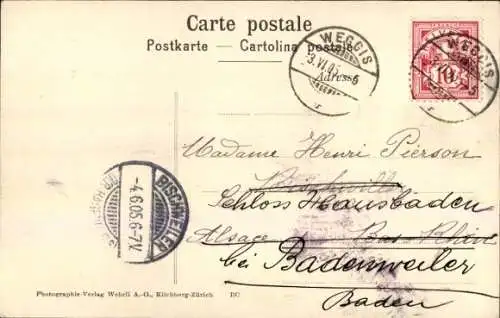 Carte postale
Postkarte — Cartolina postale
WEGGIS
3.VI.05
Adresse
WEGGIS
10
Madame Henri Pierson
Bischwiller
Schloss Hausbaden
Alsace Bas Rhin
bei Badenweiler
Baden
BISCHWEILER
-4.6.05.6-7V.
Photographie-Verlag Wehrli A.-G., Kilchberg-Zürich